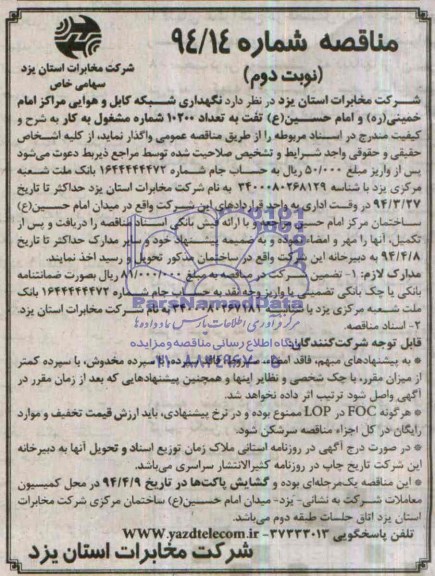 مناقصه شماره ۹۴/۱۴
(نوبت دوم)
شرکت مخابرات استان یزد
سهامی خاص
شرکت مخابرات استان یزد در نظر دارد نگهداری شبکه کابل و هوایی مراکز امام
خمینی(ره) و امام حسین(ع) تفت به تعداد ۱۰۲۰۰ شماره مشغول به کار به شرح و
کیفیت مندرج در اسناد مربوطه را از طریق مناقصه عمومی واگذار نماید، از کلیه اشخاص
حقیقی و حقوقی واجد شرایط و تشخیص صلاحیت شده توسط مراجع ذیربط دعوت می‌شود
پس از واریز مبلغ ۵۰/۰۰۰ ریال به حساب جام شماره ۱۶۴۴۴۴۴۴۷۲ بانک ملت شعبه
مرکزی یزد با شناسه ۳۴۰۰۰۸۰۲۶۸۱۲۹ به نام شرکت مخابرات استان یزد حداکثر تا تاریخ
۹۴/۳/۲۷ در وقت اداری به واحد قراردادهای این شرکت واقع در میدان امام حسین(ع)
ساختمان مرکز امام حسین مراجعه و با ارائه فیش بانکی اسناد مناقصه را دریافت و پس از
تکمیل، آنها را مهر و امضا نموده و به ضمیمه پیشنهاد خود و سایر مدارک حداکثر تا تاریخ
۹۴/۴/۸ به دبیرخانه این شرکت واقع در ساختمان مذکور تحویل و رسید اخذ نمایند.
مدارک لازم: ۱- تضمین شرکت در مناقصه به مبلغ ۸۱/۰۰۰/۰۰۰ ریال بصورت ضمانتنامه
بانکی یا چک بانکی تضمینی یا واریز وجه نقد به حساب جام شماره ۱۶۴۴۴۴۴۴۷۲ بانک
ملت شعبه مرکزی یزد با شناسه به نام شرکت مخابرات استان یزد.
۲- اسناد مناقصه.
قابل توجه شرکت‌کنندگان:
* به پیشنهادهای مبهم، فاقد امضاء، سپرده مخدوش، با سپرده کمتر
از میزان مقرر، با چک شخصی و نظایر اینها و همچنین پیشنهادهایی که بعد از زمان مقرر در
آگهی واصل شود ترتیب اثر داده نخواهد شد.
* هرگونه FOC در LOP ممنوع بوده و در نرخ پیشنهادی، باید ارزش قیمت تخفیف و موارد
رایگان در کل اجزاء مناقصه سرشکن شود.
* در صورت درج آگهی در روزنامه استانی ملاک زمان توزیع اسناد و تحویل آنها به دبیرخانه
این شرکت تاریخ چاپ در روزنامه کثیرالانتشار سراسری می‌باشد.
* این مناقصه یک‌مرحله‌ای بوده و گشایش پاکت‌ها در تاریخ ۹۴/۴/۹ در محل کمیسیون
معاملات شرکت به نشانی- یزد- میدان امام حسین(ع) ساختمان مرکزی شرکت مخابرات
استان یزد اتاق جلسات طبقه دوم می‌باشد.
تلفن پاسخگویی ۳۷۳۳۳۰۱۳- WWW.yazdtelecom.ir
شرکت مخابرات استان یزد
ParsNamadData
مرکز فرآوری اطلاعات پارس نماد داده‌ها
پایگاه اطلاع رسانی مناقصه و مزایده